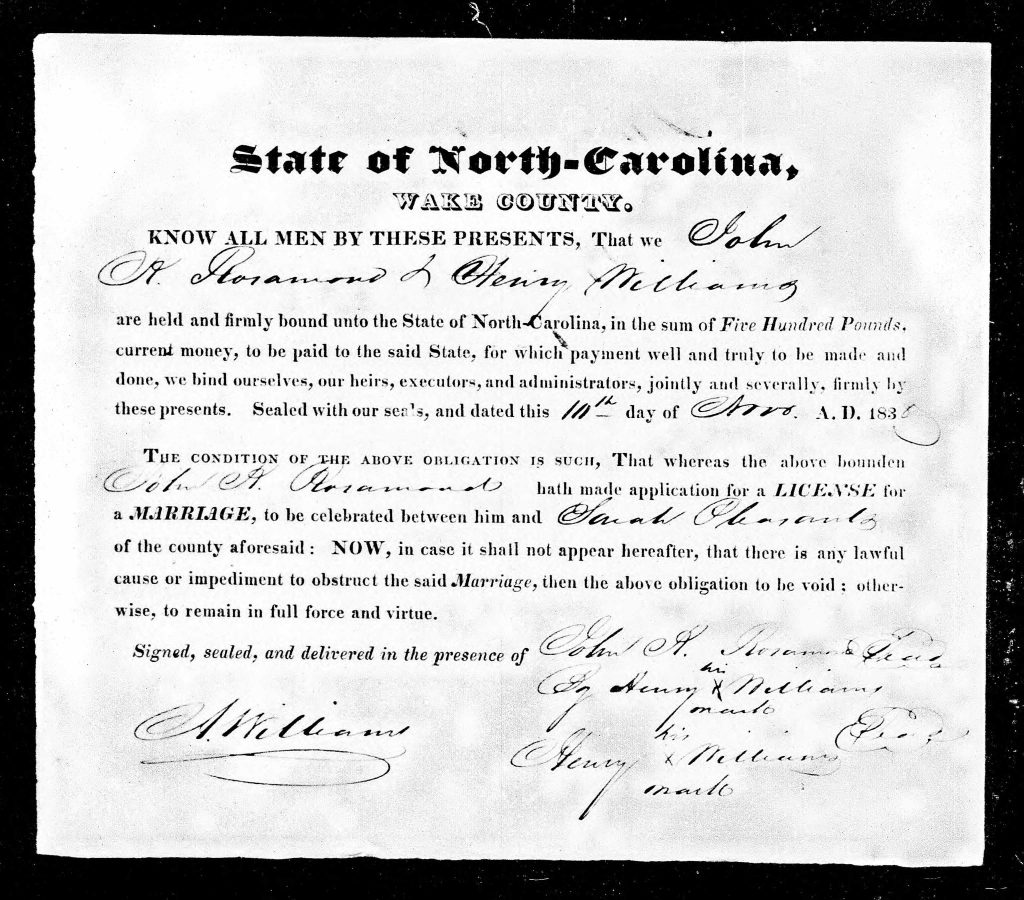 State of North-Carolina,
WAKE COUNTY.
KNOW ALL MEN BY THESE PRESENTS, That we John
R. Rosamond & Henry Williams
are held and firmly bound unto the State of North-Carolina, in the sum of Five Hundred Pounds,
current money, to be paid to the said State, for which payment well and truly to be made and
done, we bind ourselves, our heirs, executors, and administrators, jointly and severally, firmly by
these presents. Sealed with our seals, and dated this 10th day of Nov. A. D. 183
THE CONDITION OF THE ABOVE OBLIGATION IS SUCH, That whereas the above bounden
John R. Rosamond hath made application for a LICENSE for
a MARRIAGE, to be celebrated between him and Sarah Pleasants
of the county aforesaid : NOW, in case it shall not appear hereafter, that there is any lawful
cause or impediment to obstruct the said Marriage, then the above obligation to be void ; other-
wise, to remain in full force and virtue.
Signed, sealed, and delivered in the presence of John R. Rosamond Seal
his
By Henry X Williams
mark
A. Williams
his
Henry X Williams Seal
mark